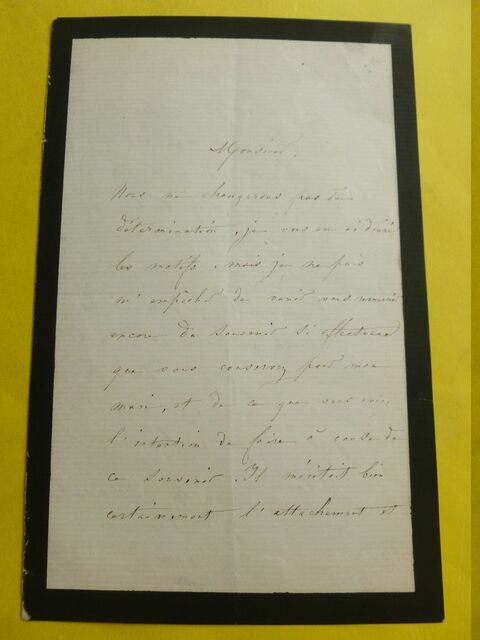 Monsieur.
Nous ne changerons pas de
détermination, je vous en ai donné
les motifs, mais je ne puis
m'empêcher de venir vous remercier
encore du souvenir si affectueux
que vous conservez pour mon
mari, et de ce que vous
l'intention de faire à cause de
ce souvenir. Il méritait bien
certainement l'attachement et